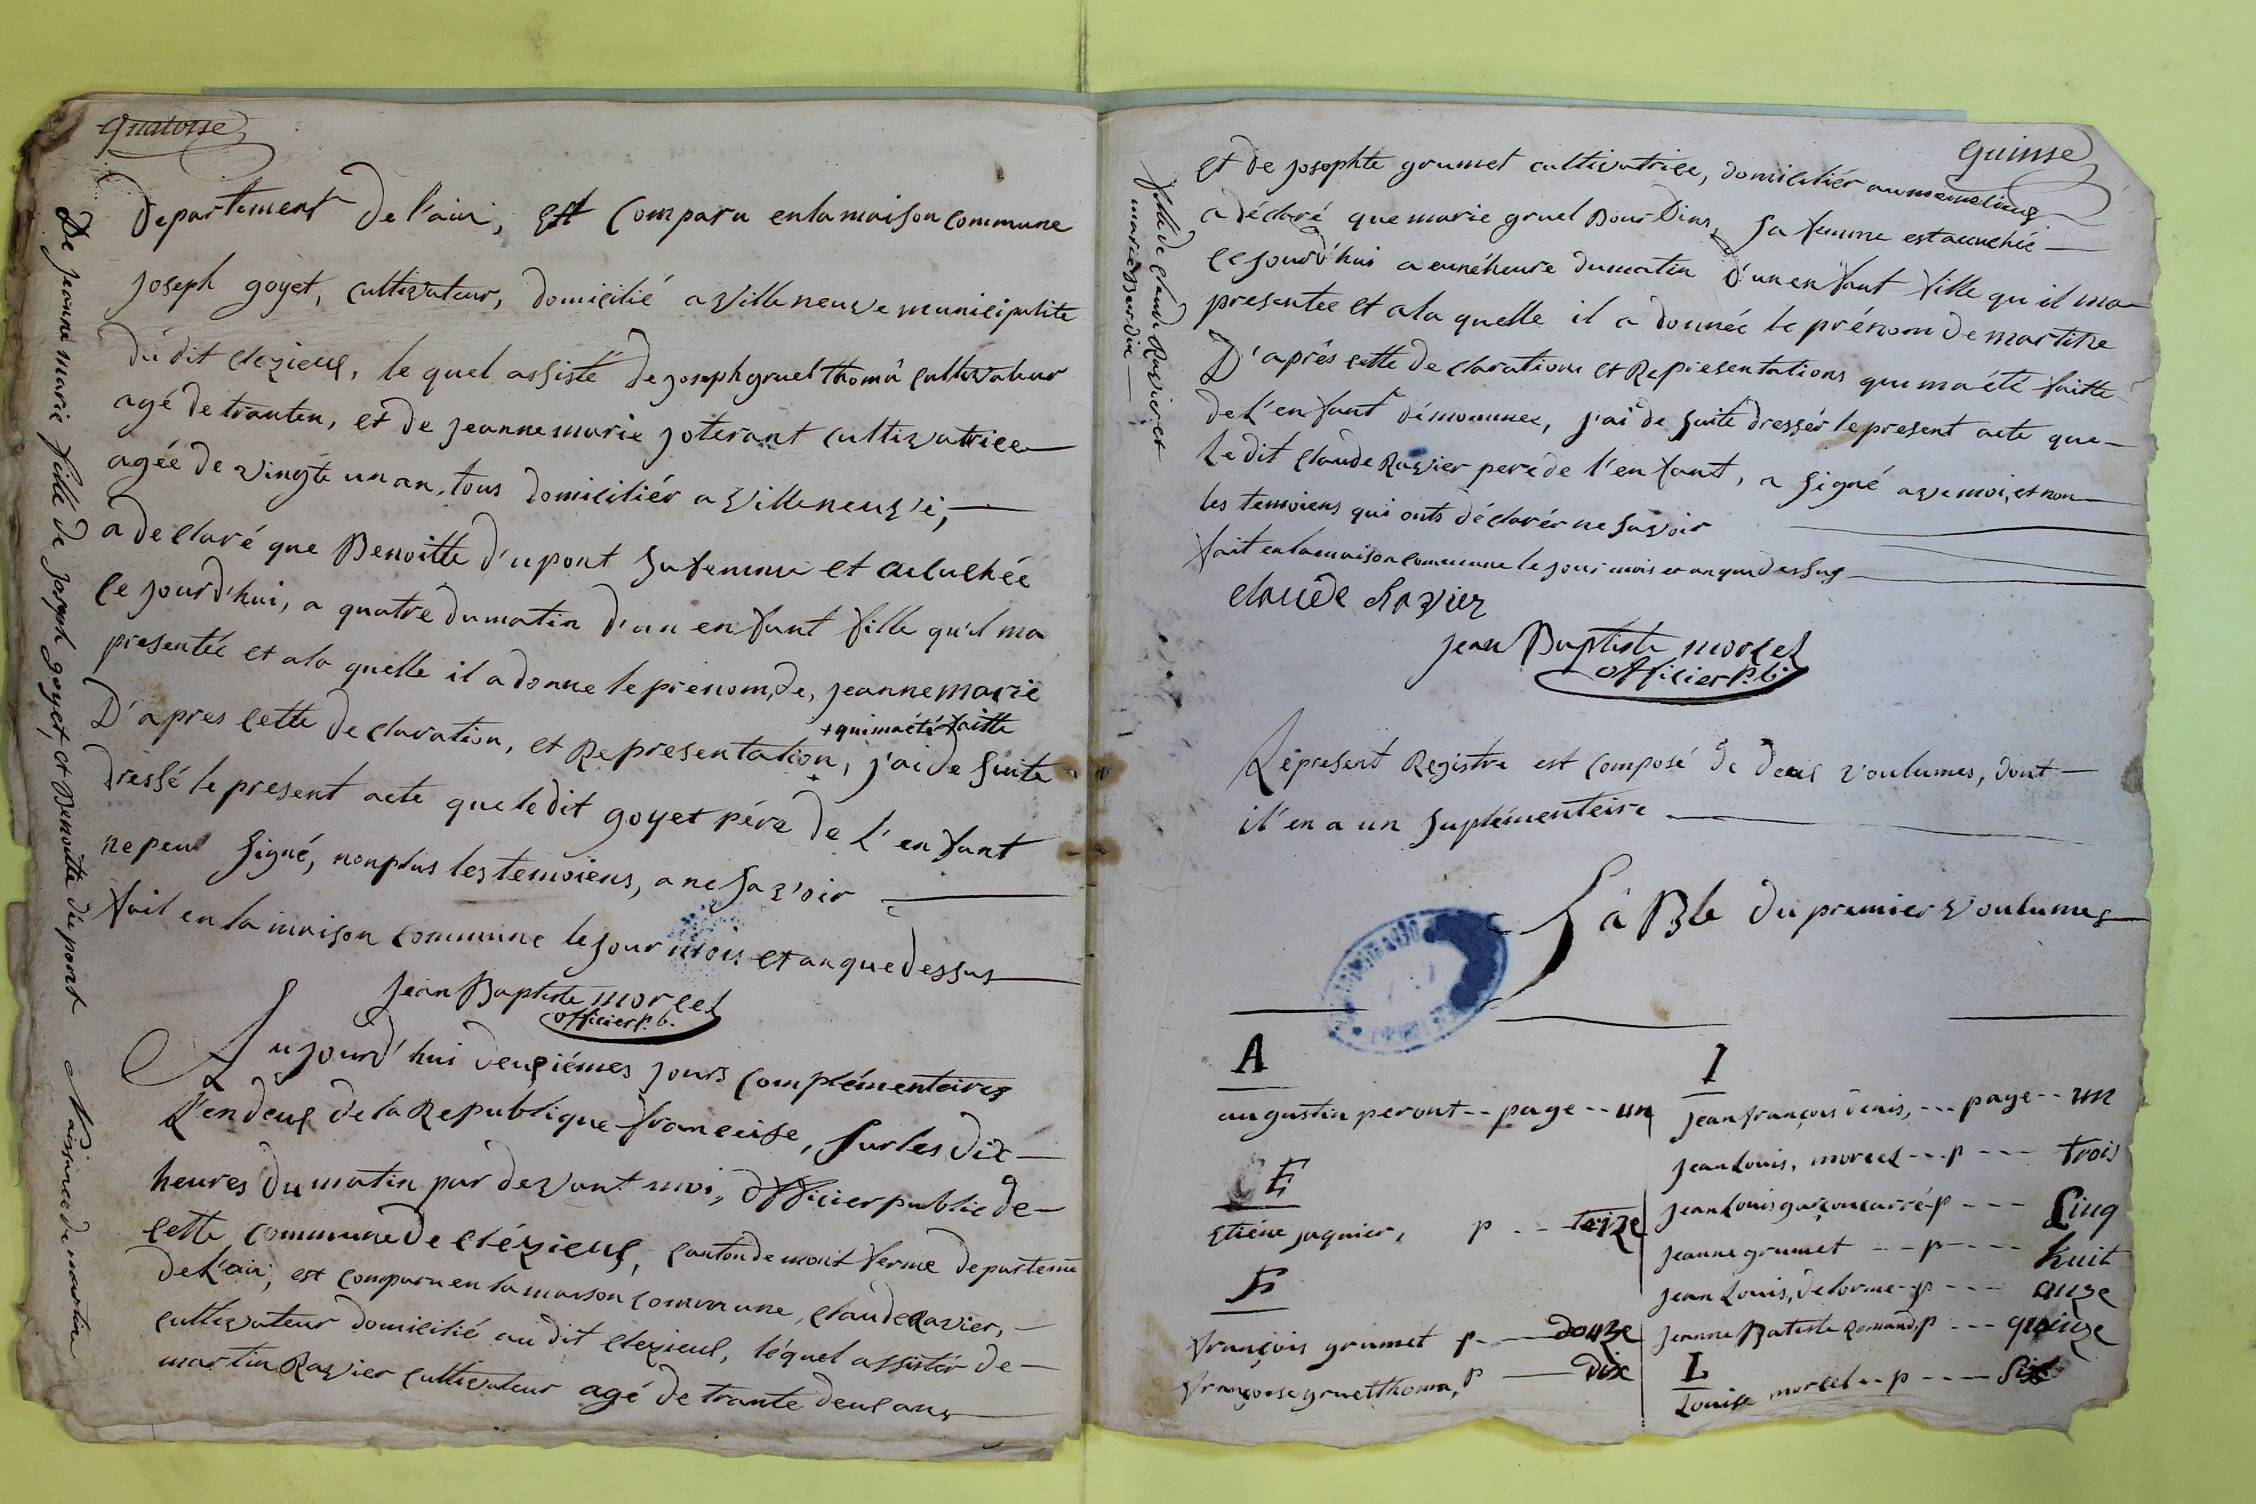 quatorse
Departement De l'ain, Est Comparu en la maison commune
joseph goyet, cultivateur, domicilié a villeneuve municipalite
du dit clezieux, le quel assisté De joseph gruel thomâ cultivateur
agé de trante
et de jeanne marie joterant cultivatrice
agée de vingte un an, tous domiciliér a villeneuve,
a declaré que Benoitte d'upont sa femme et acluchée
ce jourd'hui, a quatre du matin d'un enfant fille qu'il ma
presentée et a la quelle il a donne le prenom, de, jeanne marie
+ qui ma été faitte
D'apres cette declaration, et Representation, j'ai de suite
dressé le present acte que le dit goyet pére de l'enfant
ne peut signé, non plus les temoiens, a ne savoir
fait en la maison commune le jour mois et an que dessus
jean Baptiste morcel
officier p. b.
Aujourd'hui deuxiémes jours complémentaires
L'en deux de la Republique franceise, sur les dix
heures du matin par devant moi, officier public de
cette commune de clézieux, canton de mont ferme departeme
de l'ain, est comparu en la maison commune, claude ravier,
cultivateur domicilié au dit clezieux, léquel assistér de
martin Ravier cultivateur agé de trante deux ans
De jeanne marie fille de joseph goyet, et Benoitte dupont
Naissance de martine
quinse
et de josephte grumet cultivatrice, domiciliér au meme lieux
a déclaré que marie gruel Bourdins, sa femme est acuchée
ce jourd'hui a une heure du matin d'un enfant fille qu'il ma
presentée et a la quelle il a donnée le prénom de martine
D'aprés cette declarations et Representations qui ma été faitte
de l'enfant dénommee, j'ai de suite dressér le present acte que
Le dit claude Ravier pere de l'enfant, a signé ave moi, et non
les temoiens qui onts déclarér ne savoir
fait en la maison commune le jour mois et an que dessus
claude Ravier
jean Baptiste morcel
officier p. b.
fille de claude Ravier et
marie Bourdin
Lépresent Registre est composé de deux voulumes, dont
il en a un suplémenteire
TâBle du premier voulumes
A
augustin peront -- page -- un
E
etiéne jaquier, p -- treize
F
françois grumet p. -- douze
françoise gruel thoma, p -- dix
I
jean françois denis, --- page -- un
jean Louis, morcel --- p --- trois
jean Louis garçon carré - p --- cinq
jeanne grumet --- p --- huit
jean Louis, delorme - p --- onze
jeanne Batiste Romand p --- quinze
L
Louise morcel -- p ---- six